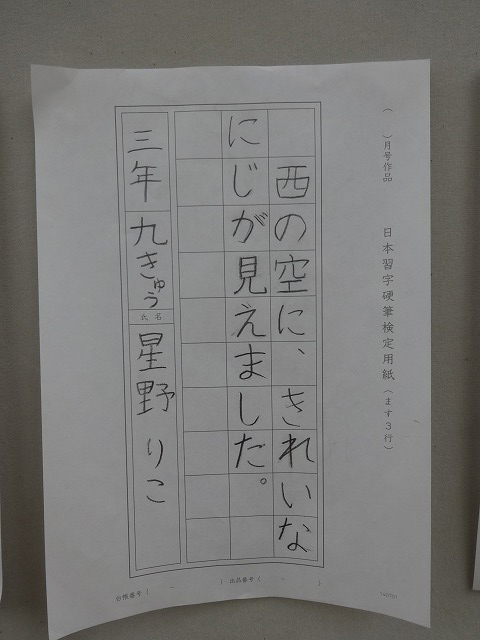 ( )月号作品 日本習字硬筆検定用紙(ます3行)
西の空に、きれいな
にじが見えました。
三年 九きゅう
氏名
星野 りこ
会员番号( - ) 出品番号( - )
140701